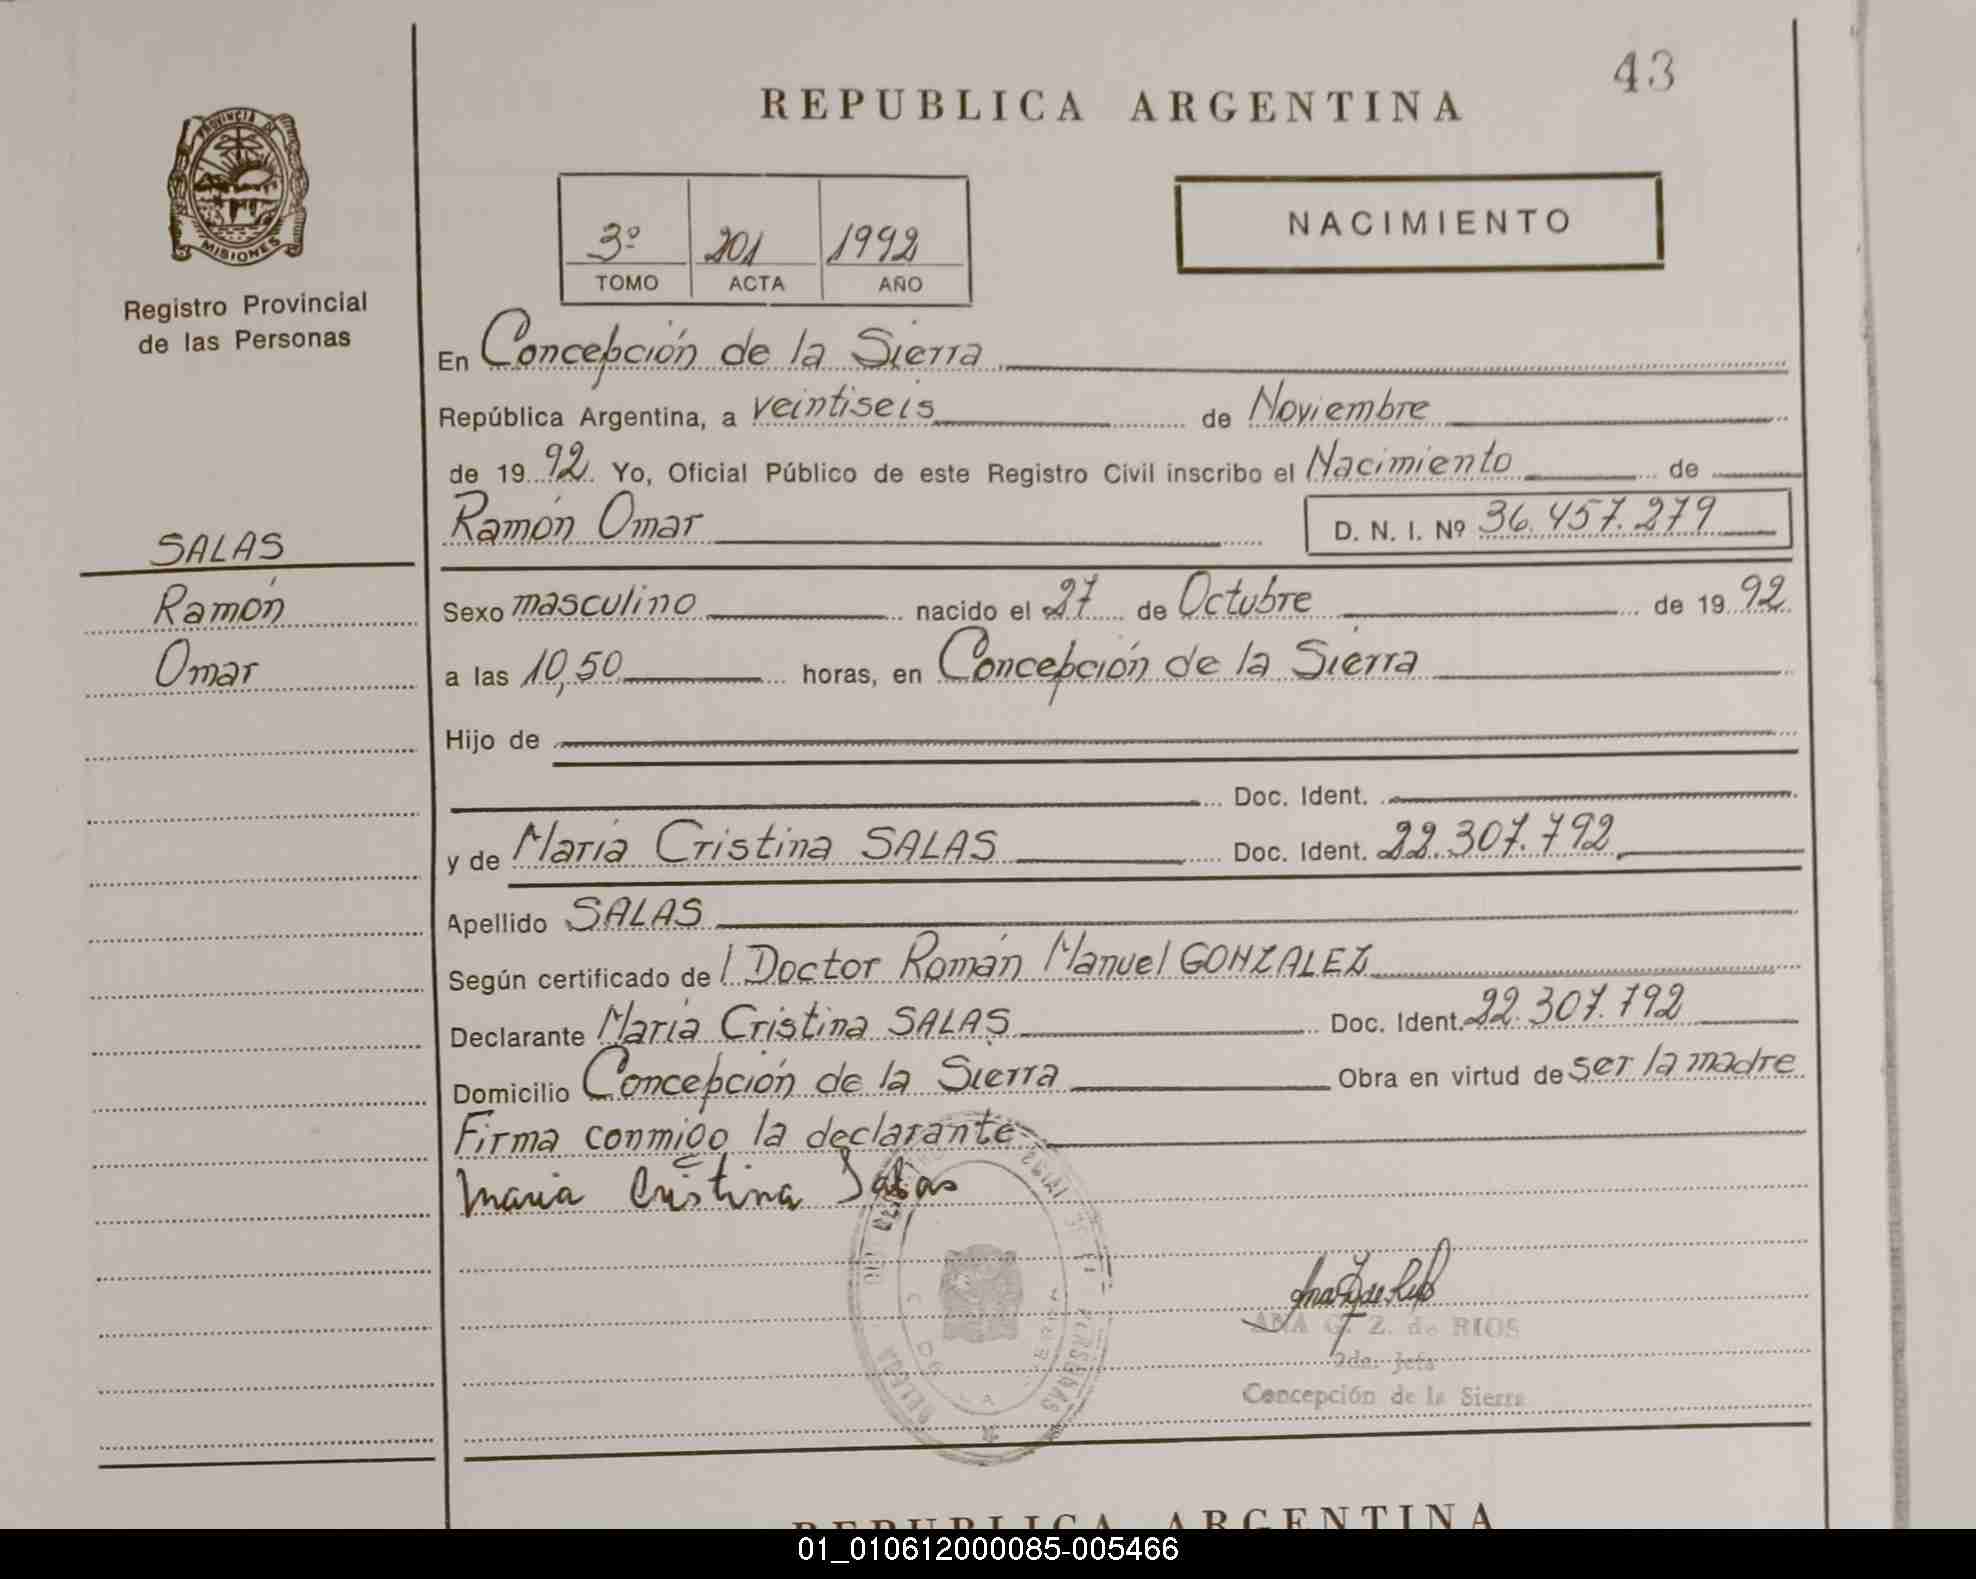 43
REPUBLICA ARGENTINA
PROVINCIA DE
MISIONES
Registro Provincial
de las Personas
3º 201 1992
TOMO ACTA AÑO
NACIMIENTO
En Concepción de la Sierra
República Argentina, a veintiseis de Noviembre
de 19 92 Yo, Oficial Público de este Registro Civil inscribo el Nacimiento de
Ramón Omar D. N. I. Nº 36.457.279
SALAS
Ramón
Omar
Sexo masculino nacido el 27 de Octubre de 19 92
a las 10,50 horas, en Concepción de la Sierra
Hijo de
Doc. Ident.
y de María Cristina SALAS Doc. Ident. 22.307.792
Apellido SALAS
Según certificado de l Doctor Román Manuel GONZALEZ
Declarante María Cristina SALAS Doc. Ident. 22.307.792
Domicilio Concepción de la Sierra Obra en virtud de ser la madre
Firma conmigo la declarante
Maria Cristina Salas
ANA G. Z. de RIOS
2da. Jefa
Concepción de la Sierra
REPUBLICA ARGENTINA
01_010612000085-005466